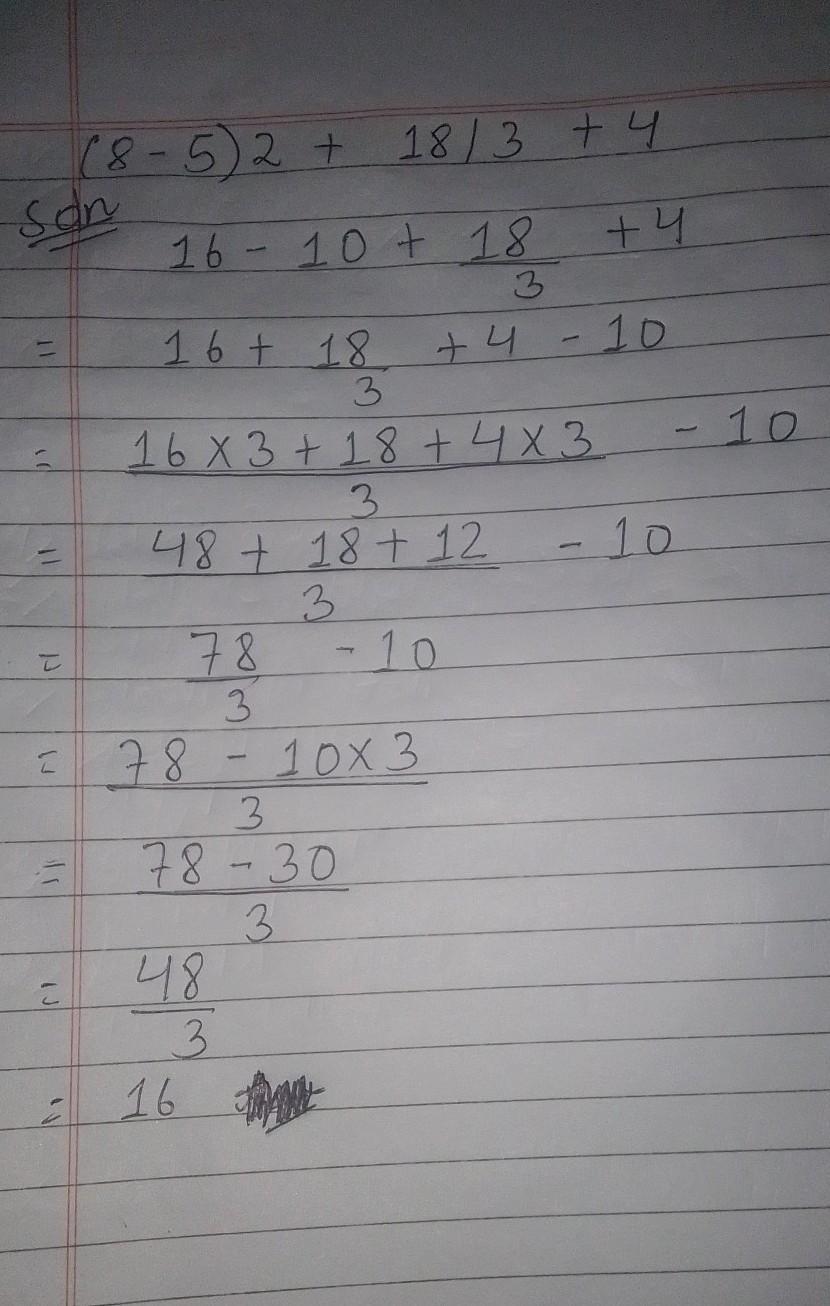 (8-5)2 + 18/3 + 4
Soln
16 - 10 + 18/3 + 4
= 16 + 18/3 + 4 - 10
= 16 x 3 + 18 + 4 x 3 / 3 - 10
= 48 + 18 + 12 / 3 - 10
= 78/3 - 10
= 78 - 10 x 3 / 3
= 78 - 30 / 3
= 48/3
= 16